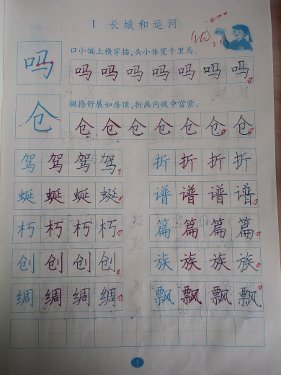 1 长城和运河
吗 口小偏上横穿插,头小体宽千里马。
吗 吗 吗 吗 吗 吗 吗
仓 撇捺舒展如房顶,折画内收中宫紧。
仓 仓 仓 仓 仓 仓 仓
驾 驾 驾 驾 折 折 折 折
蜒 蜒 蜒 蜒 谱 谱 谱 谱
朽 朽 朽 朽 篇 篇 篇 篇
创 创 创 创 族 族 族 族
绸 绸 绸 绸 飘 飘 飘 飘